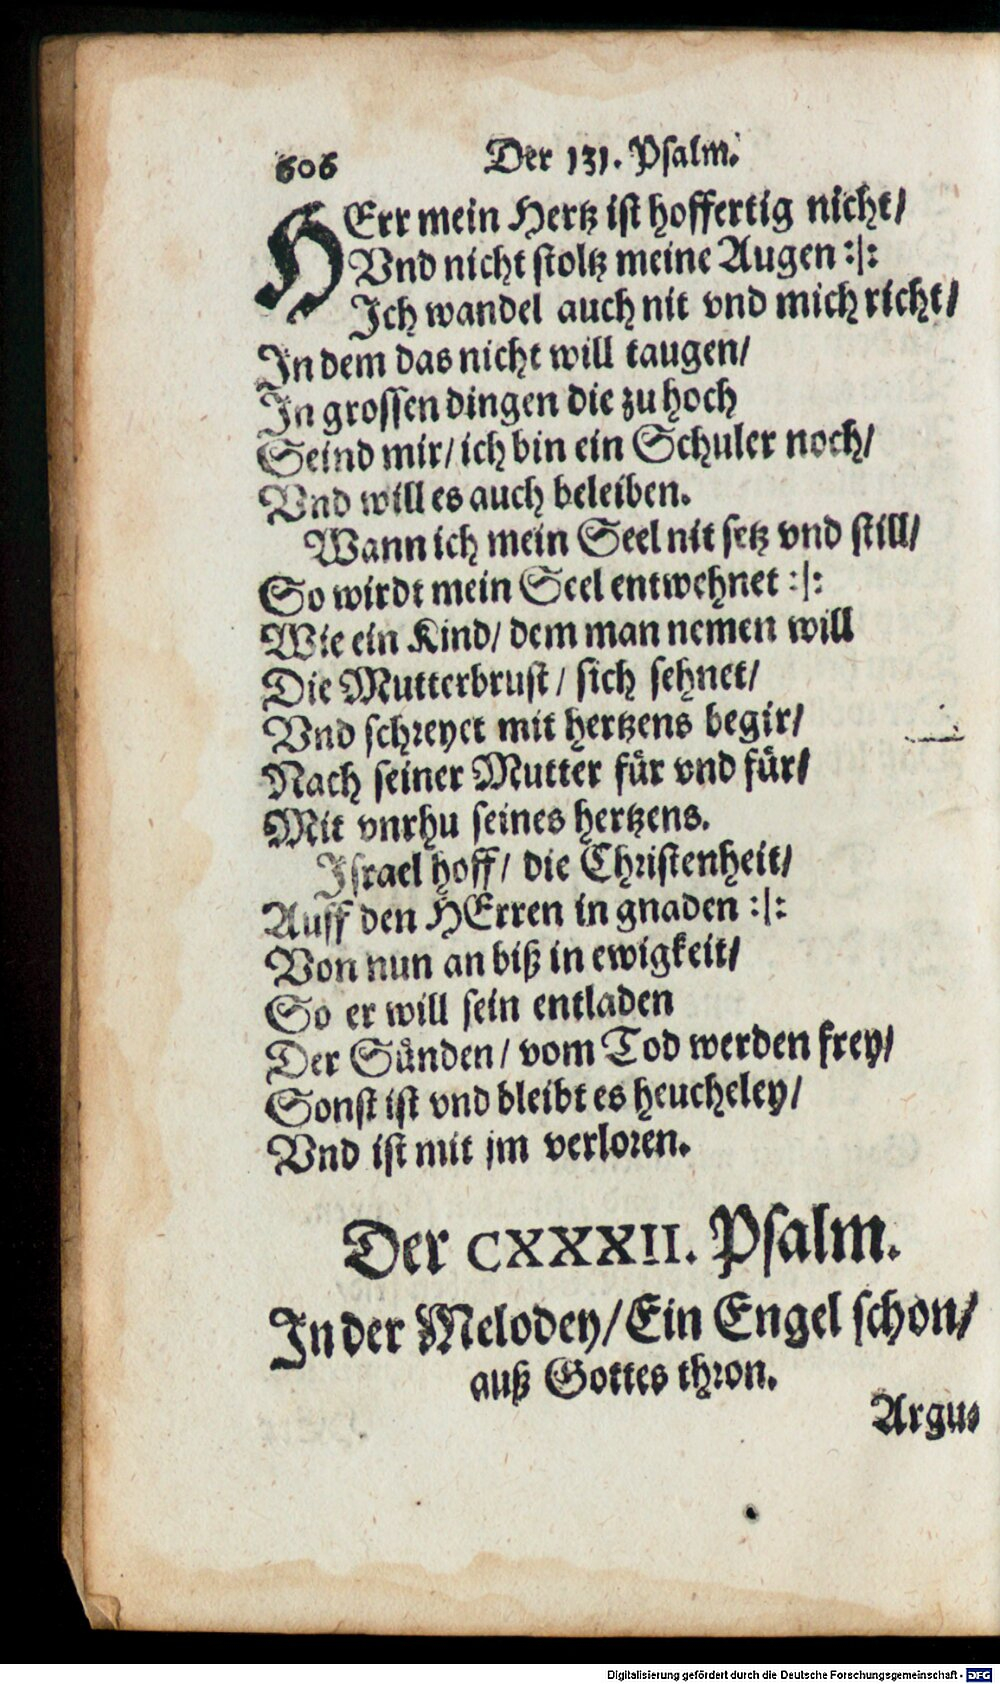 606 Der 131. Psalm.
HErr mein Hertz ist hoffertig nicht/
Vnd nicht stoltz meine Augen :|:
Ich wandel auch nit vnd mich richt/
In dem das nicht will taugen/
In grossen dingen die zu hoch
Seind mir/ ich bin ein Schuler noch/
Vnd will es auch beleiben.
Wann ich mein Seel nit setz vnd still/
So wirdt mein Seel entwehnet :|:
Wie ein Kind/ dem man nemen will
Die Mutterbrust/ sich sehnet/
Vnd schreyet mit hertzens begir/
Nach seiner Mutter für vnd für/
Mit vnrhu seines hertzens.
Israel hoff/ die Christenheit/
Auff den HErren in gnaden :|:
Von nun an biß in ewigkeit/
So er will sein entladen
Der Sünden/ vom Tod werden frey/
Sonst ist vnd bleibt es heucheley/
Vnd ist mit jm verloren.
Der CXXXII. Psalm.
In der Melodey/ Ein Engel schon/
auß Gottes thron.
Argu⸗
Digitalisierung gefördert durch die Deutsche Forschungsgemeinschaft - DFG